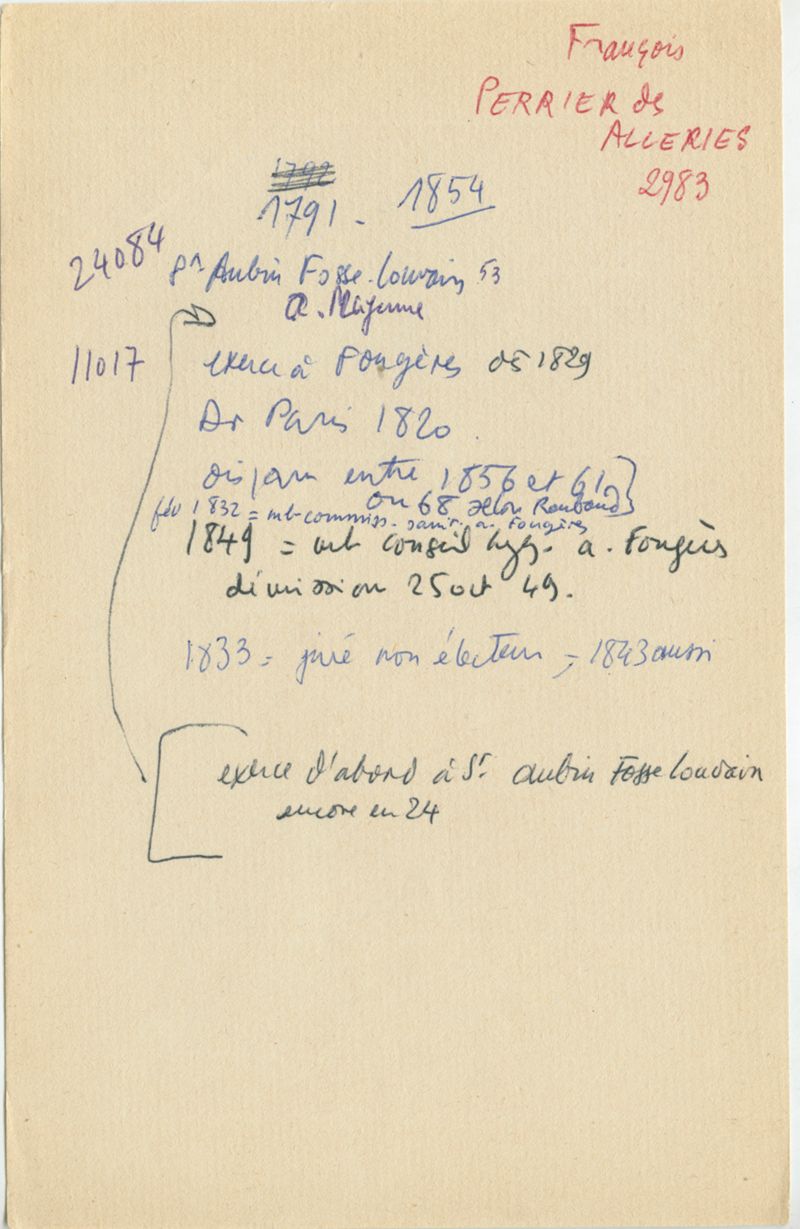 François
PERRIER des
ALLERIES
2983
1792
1791 - 1854
24084 St Aubin Fosse-Louvain 53
a. Mayenne
11017 exerce à Fougères dès 1829
Dr Paris 1820.
disparu entre 1856 et 61
ou 68 selon Roubaud
fév 1832 = mb-commiss. sanit. a. Fougères
1849 = mb conseil hyg. a. Fougères
démission 25 oct 49.
1833 = juré non électeur - 1843 aussi
exerce d'abord à St aubin Fosse Louvain
encore en 24